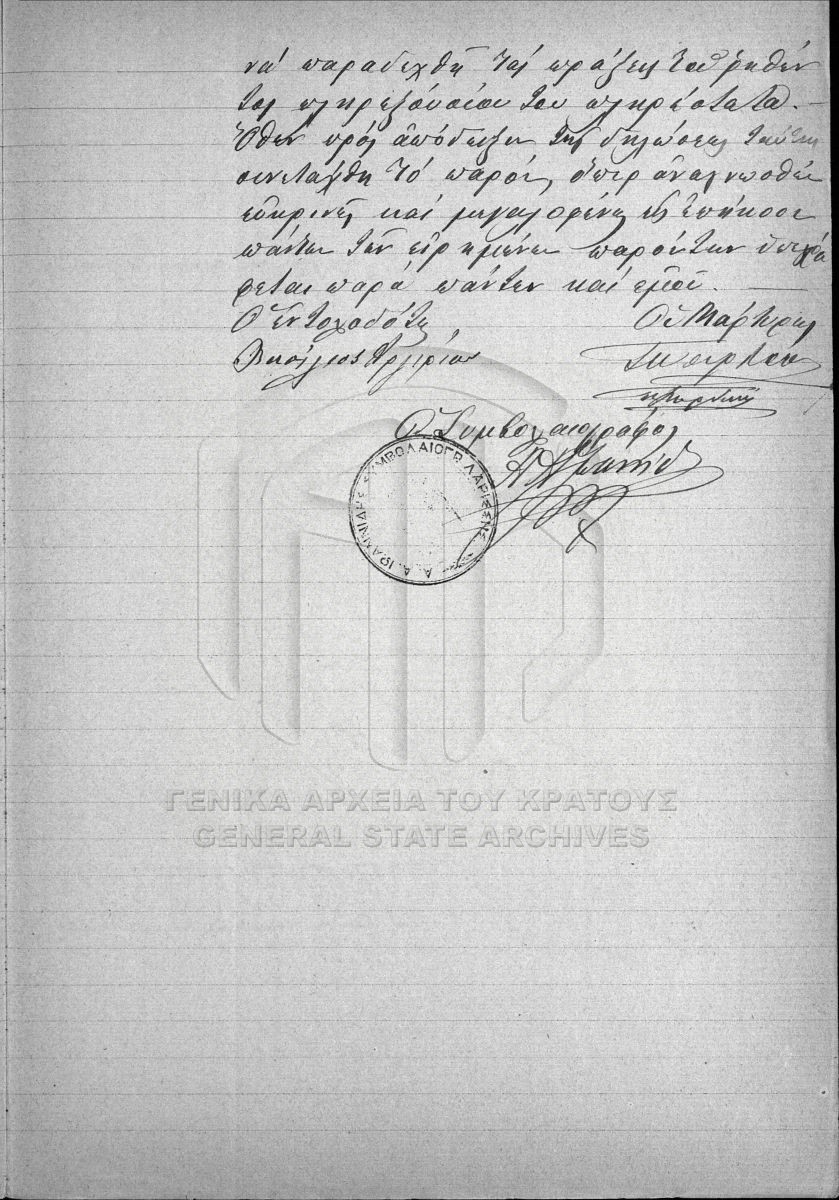 νά παραδεχθῇ τάς πράξεις τοῦ ρηθέν
τος πληρεξουσίου του πληρέστατα. —
Ὅθεν πρός ἀπόδειξιν τῆς δηλώσεως ταύτης
συνετάχθη τό παρόν, ὅπερ ἀναγνωσθέν
εὐκρινῶς καί μεγαλοφώνως εἰς ἐπήκοον
πάντων τῶν εἰρημένων παρόντων ὑπογρά
φεται παρά πάντων καί ἐμοῦ. —
Ὁ Ἐντολοδότης Οἱ Μάρτυρες
Βασίλειος
Ὁ Συμβολαιογράφος
Α. Α. ΙΩΑΝΝΙΔΗΣ ΣΥΜΒΟΛΑΙΟΓΡ. ΛΑΡΙΣΣΗΣ
ΓΕΝΙΚΑ ΑΡΧΕΙΑ ΤΟΥ ΚΡΑΤΟΥΣ
GENERAL STATE ARCHIVES